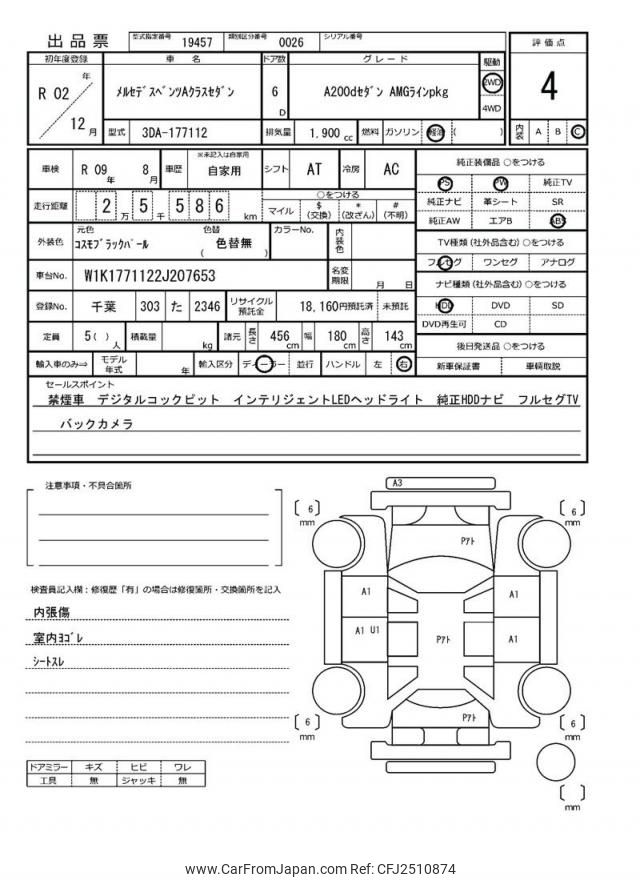 出品票 型式指定番号 19457 類別区分番号 0026 シリアル番号
初年度登録 車名 ドア数 グレード 駆動 評価点
R 02 年 12 月 ﾒﾙｾﾃﾞｽﾍﾞﾝﾂAクラスセダン 6 D A200dセダン AMGラインpkg 2WD 4WD 4
型式 3DA-177112 排気量 1.900 cc 燃料 ガソリン 軽油 ( ) 内装 A B C
車検 R 09 年 8 月 車歴 ※未記入は自家用 自家用 シフト AT 冷房 AC 純正装備品 ○をつける
PS PW 純正TV
走行距離 2 万 5 千 5 8 6 km ○をつける マイル $ (交換) * (改ざん) # (不明) 純正ナビ 革シート SR
純正AW エアB ABS
外装色 元色 ｺｽﾓﾌﾞﾗｯｸﾊﾟｰﾙ 色替 ( 色替無 ) カラーNo. 内装色 TV種類 (社外品含む) ○をつける
フルセグ ワンセグ アナログ
車台No. W1K1771122J207653 名変期限 月 日 ナビ種類 (社外品含む) ○をつける
登録No. 千葉 303 た 2346 リサイクル預託金 18,160円預託済 未預託 HDD DVD SD
DVD再生可 CD
定員 5 ( ) 人 積載量 kg 諸元 長さ 456 cm 幅 180 cm 高さ 143 cm 後日発送品 ○をつける
輸入車のみ⇒ モデル年式 年 輸入区分 ディーラー 並行 ハンドル 左 右 新車保証書 車輌取説
セールスポイント
禁煙車 デジタルコックピット インテリジェントLEDヘッドライト 純正HDDナビ フルセグTV
バックカメラ
注意事項・不具合箇所
検査員記入欄：修復歴「有」の場合は修復箇所・交換箇所を記入
内張傷
室内ﾖｺﾞﾚ
ｼｰﾄｽﾚ
ドアミラー キズ ヒビ ワレ
工具 無 ジャッキ 無
A3
[ 6 ] mm [ 6 ] mm
Pｱﾄ
A1 A1
A1 U1 Pｱﾄ A1
Pｱﾄ
[ 6 ] mm [ 6 ] mm
[ ] mm
www.CarFromJapan.com Ref: CFJ2510874